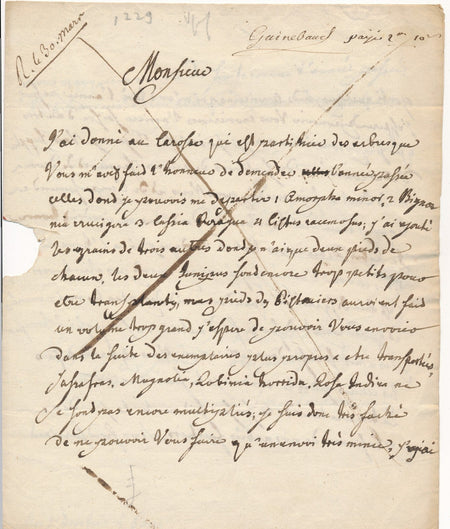 1229
R. le 30. mars
Gainebaud payés 2
Monsieur
J'ai donné au Carosse qui est parti hier des arbres que
Vous m'avés fait l'honneur de demander l'année passée
celles dont je pouvois me departir 1 Amorpha minor, 2 Bigno
nia crucigera 3 Cassia 4 Cistes racemosus; j'ai ajouté
les grains de trois autres dont je n'ai que deux pieds de
chacun, les deux Junipus sont encore trop petits pour
etre transplantés, mes pieds de Pistachiers auroient fait
un volume trop grand j'espere de pouvoir Vous envoier
dans la suite des exemplaires plus propres a etre transportés,
Sasafras, Magnolia, Robinia horrida, Rosa Indica ne
se sont pas encore multipliés; je suis donc très faché
de ne pouvoir Vous faire qu'un envoi très mince,